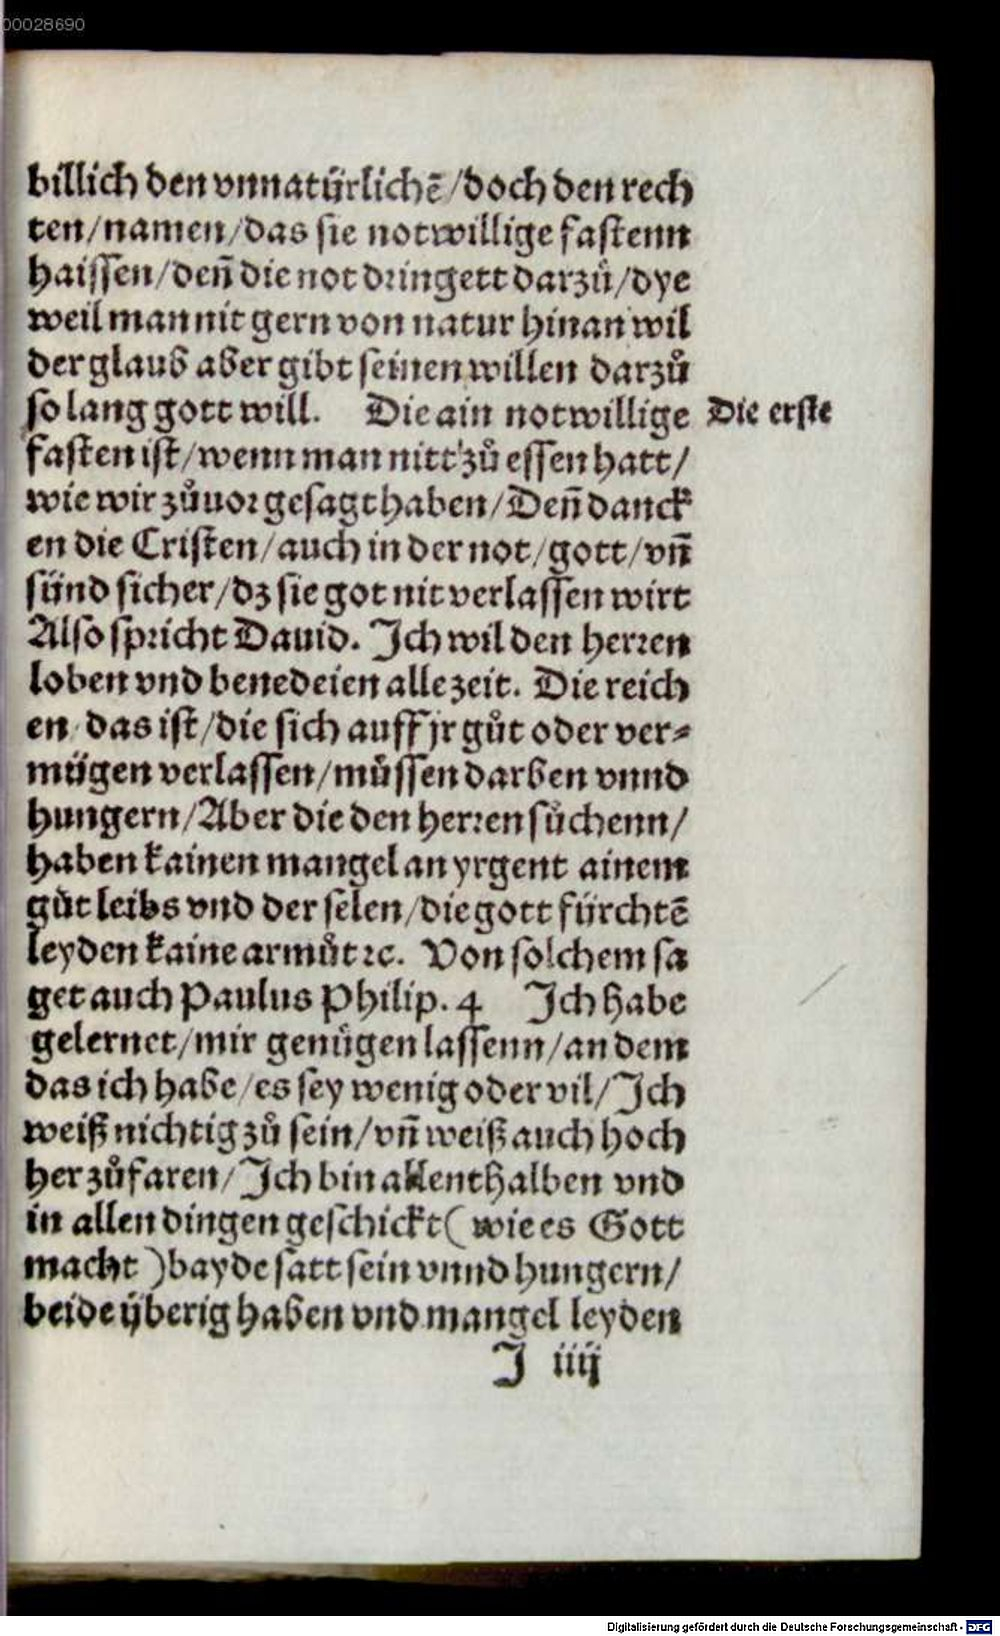 00028690
billich den vnnatürlichē/doch den rech
ten/namen/das sie notwillige fastenn
haissen/deñ die not dringett darzů/dye
weil man nit gern von natur hinan wil
der glaub aber gibt seinen willen darzů
so lang gott will. Die ain notwillige
Die erste
fasten ist/wenn man nitt zů essen hatt/
wie wir zůuor gesagt haben/Deñ danck
en die Cristen/auch in der not/gott/vñ
sünd sicher/dz sie got nit verlassen wirt
Also spricht Dauid. Ich wil den herren
loben vnd benedeien alle zeit. Die reich
en das ist/die sich auff jr gůt oder ver⸗
mügen verlassen/müssen darben vnnd
hungern/Aber die den herren sůchenn/
haben kainen mangel an yrgent ainem
gůt leibs vnd der selen/die gott fürchtē
leyden kaine armůt ꝛc. Von solchem sa
get auch Paulus Philip. 4 Ich habe
gelernet/mir genügen lassenn/an dem
das ich habe/es sey wenig oder vil/Ich
weiß nichtig zů sein/vñ weiß auch hoch
her zůfaren/Ich bin allenthalben vnd
in allen dingen geschickt( wie es Gott
macht )bayde satt sein vnnd hungern/
beide überig haben vnd mangel leyden
J iiij
Digitalisierung gefördert durch die Deutsche Forschungsgemeinschaft - DFG